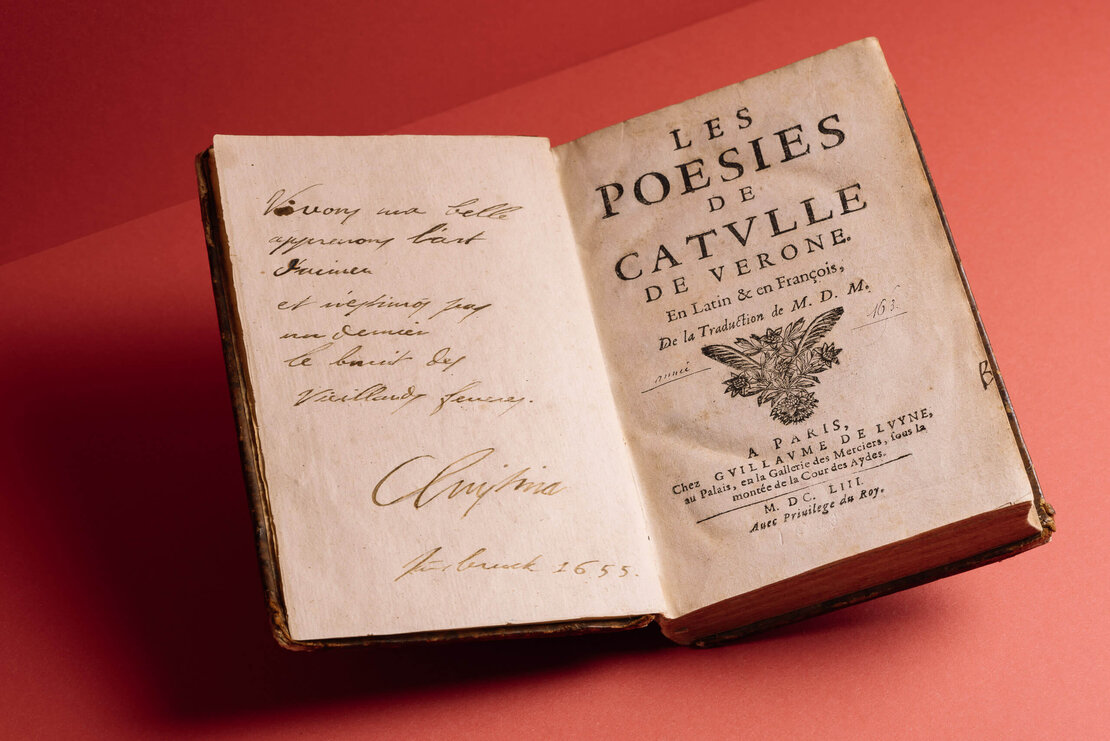 Vivons ma belle
apprenons l'art
d'aimer
et n'estimons pas
un denier
le bruit des
Vieillards severes.
Christina
Insbruck 1655.
LES
POESIES
DE
CATVLLE
DE VERONE.
En Latin & en François,
De la Traduction de M. D. M.
année
B
A PARIS,
Chez GVILLAVME DE LVYNE,
au Palais, en la Gallerie des Merciers, sous la
montée de la Cour des Aydes.
M. DC. LIII.
Auec Priuilege du Roy.